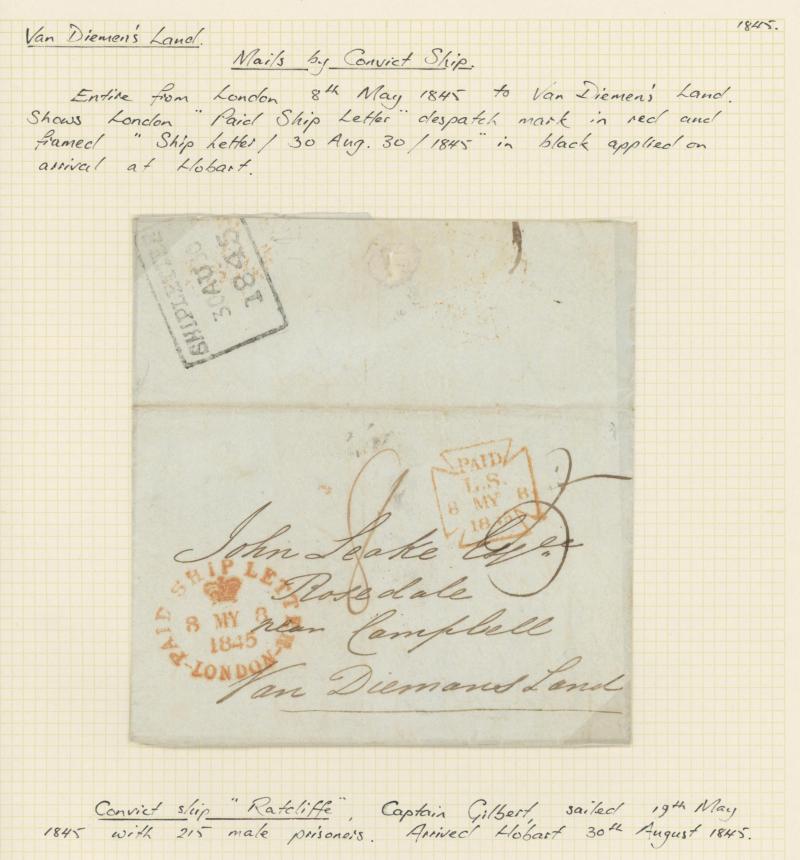 Van Diemen's Land.
1845.
Mails by Convict Ship.
Entire from London 8th May 1845 to Van Diemen's Land.
Shows London "Paid Ship Letter" despatch mark in red and
framed "Ship Letter / 30 Aug. 30 / 1845" in black applied on
arrival at Hobart.
SHIP LETTER
30 AU 30
1845
PAID
L.S.
8 MY 8
1845
8
John Leake Esqre
Rosedale
near Campbell
Van Diemans Land
PAID SHIP LETTER
8 MY 8
1845
LONDON
Convict ship "Ratcliffe", Captain Gilbert, sailed 19th May
1845 with 215 male prisoners. Arrived Hobart 30th August 1845.